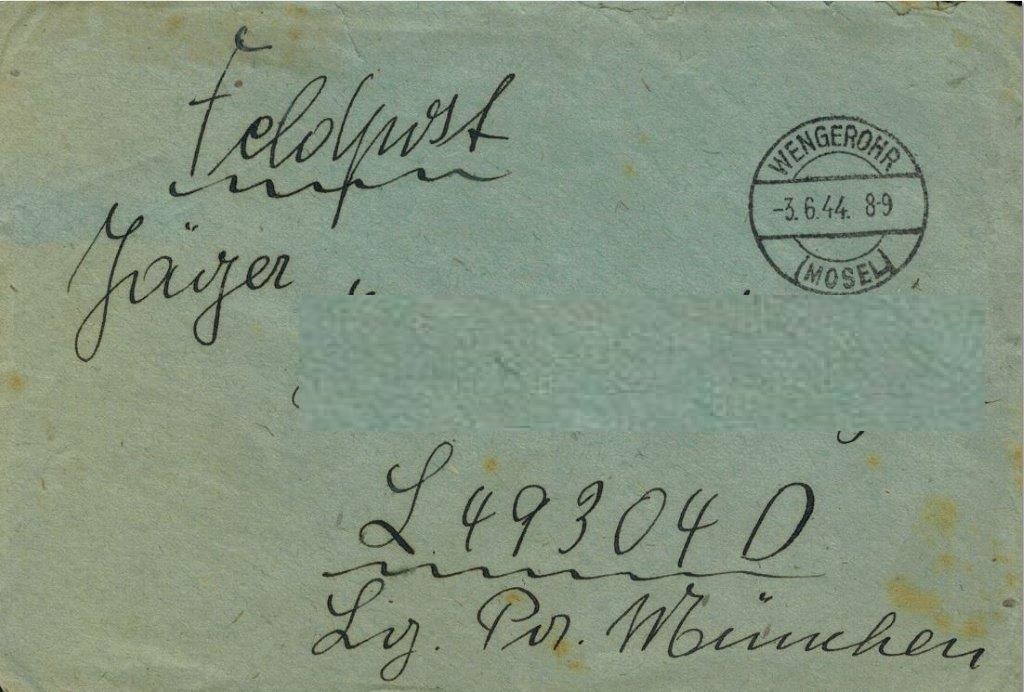 Feldpost
WENGEROHR
-3.6.44. 8-9
(MOSEL)
Jäger
L 49304 D
Lg. Pa. München